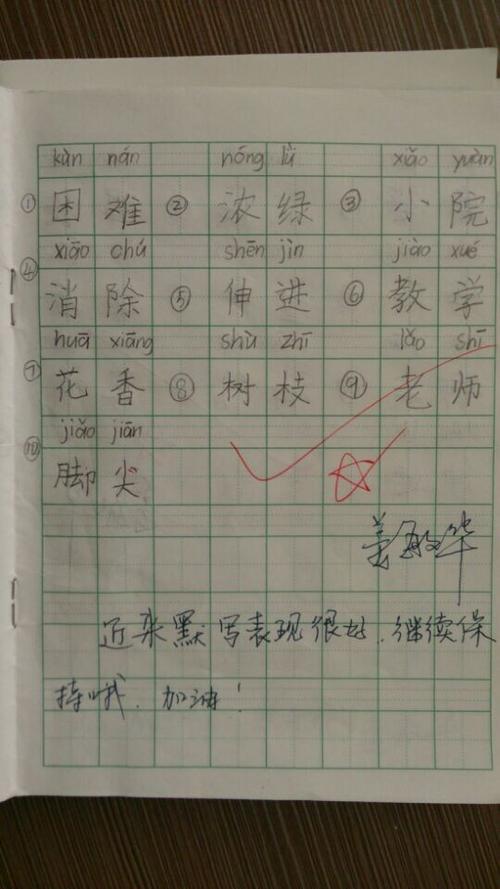 kùn nán nóng lǜ xiǎo yuàn
① 困难 ② 浓绿 ③ 小院
xiāo chú shēn jìn jiào xué
④ 消除 ⑤ 伸进 ⑥ 教学
huā xiāng shù zhī lǎo shī
⑦ 花香 ⑧ 树枝 ⑨ 老师
jiǎo jiān
⑩ 脚尖
姜敏华
近来默写表现很好,继续保
持哦,加油!